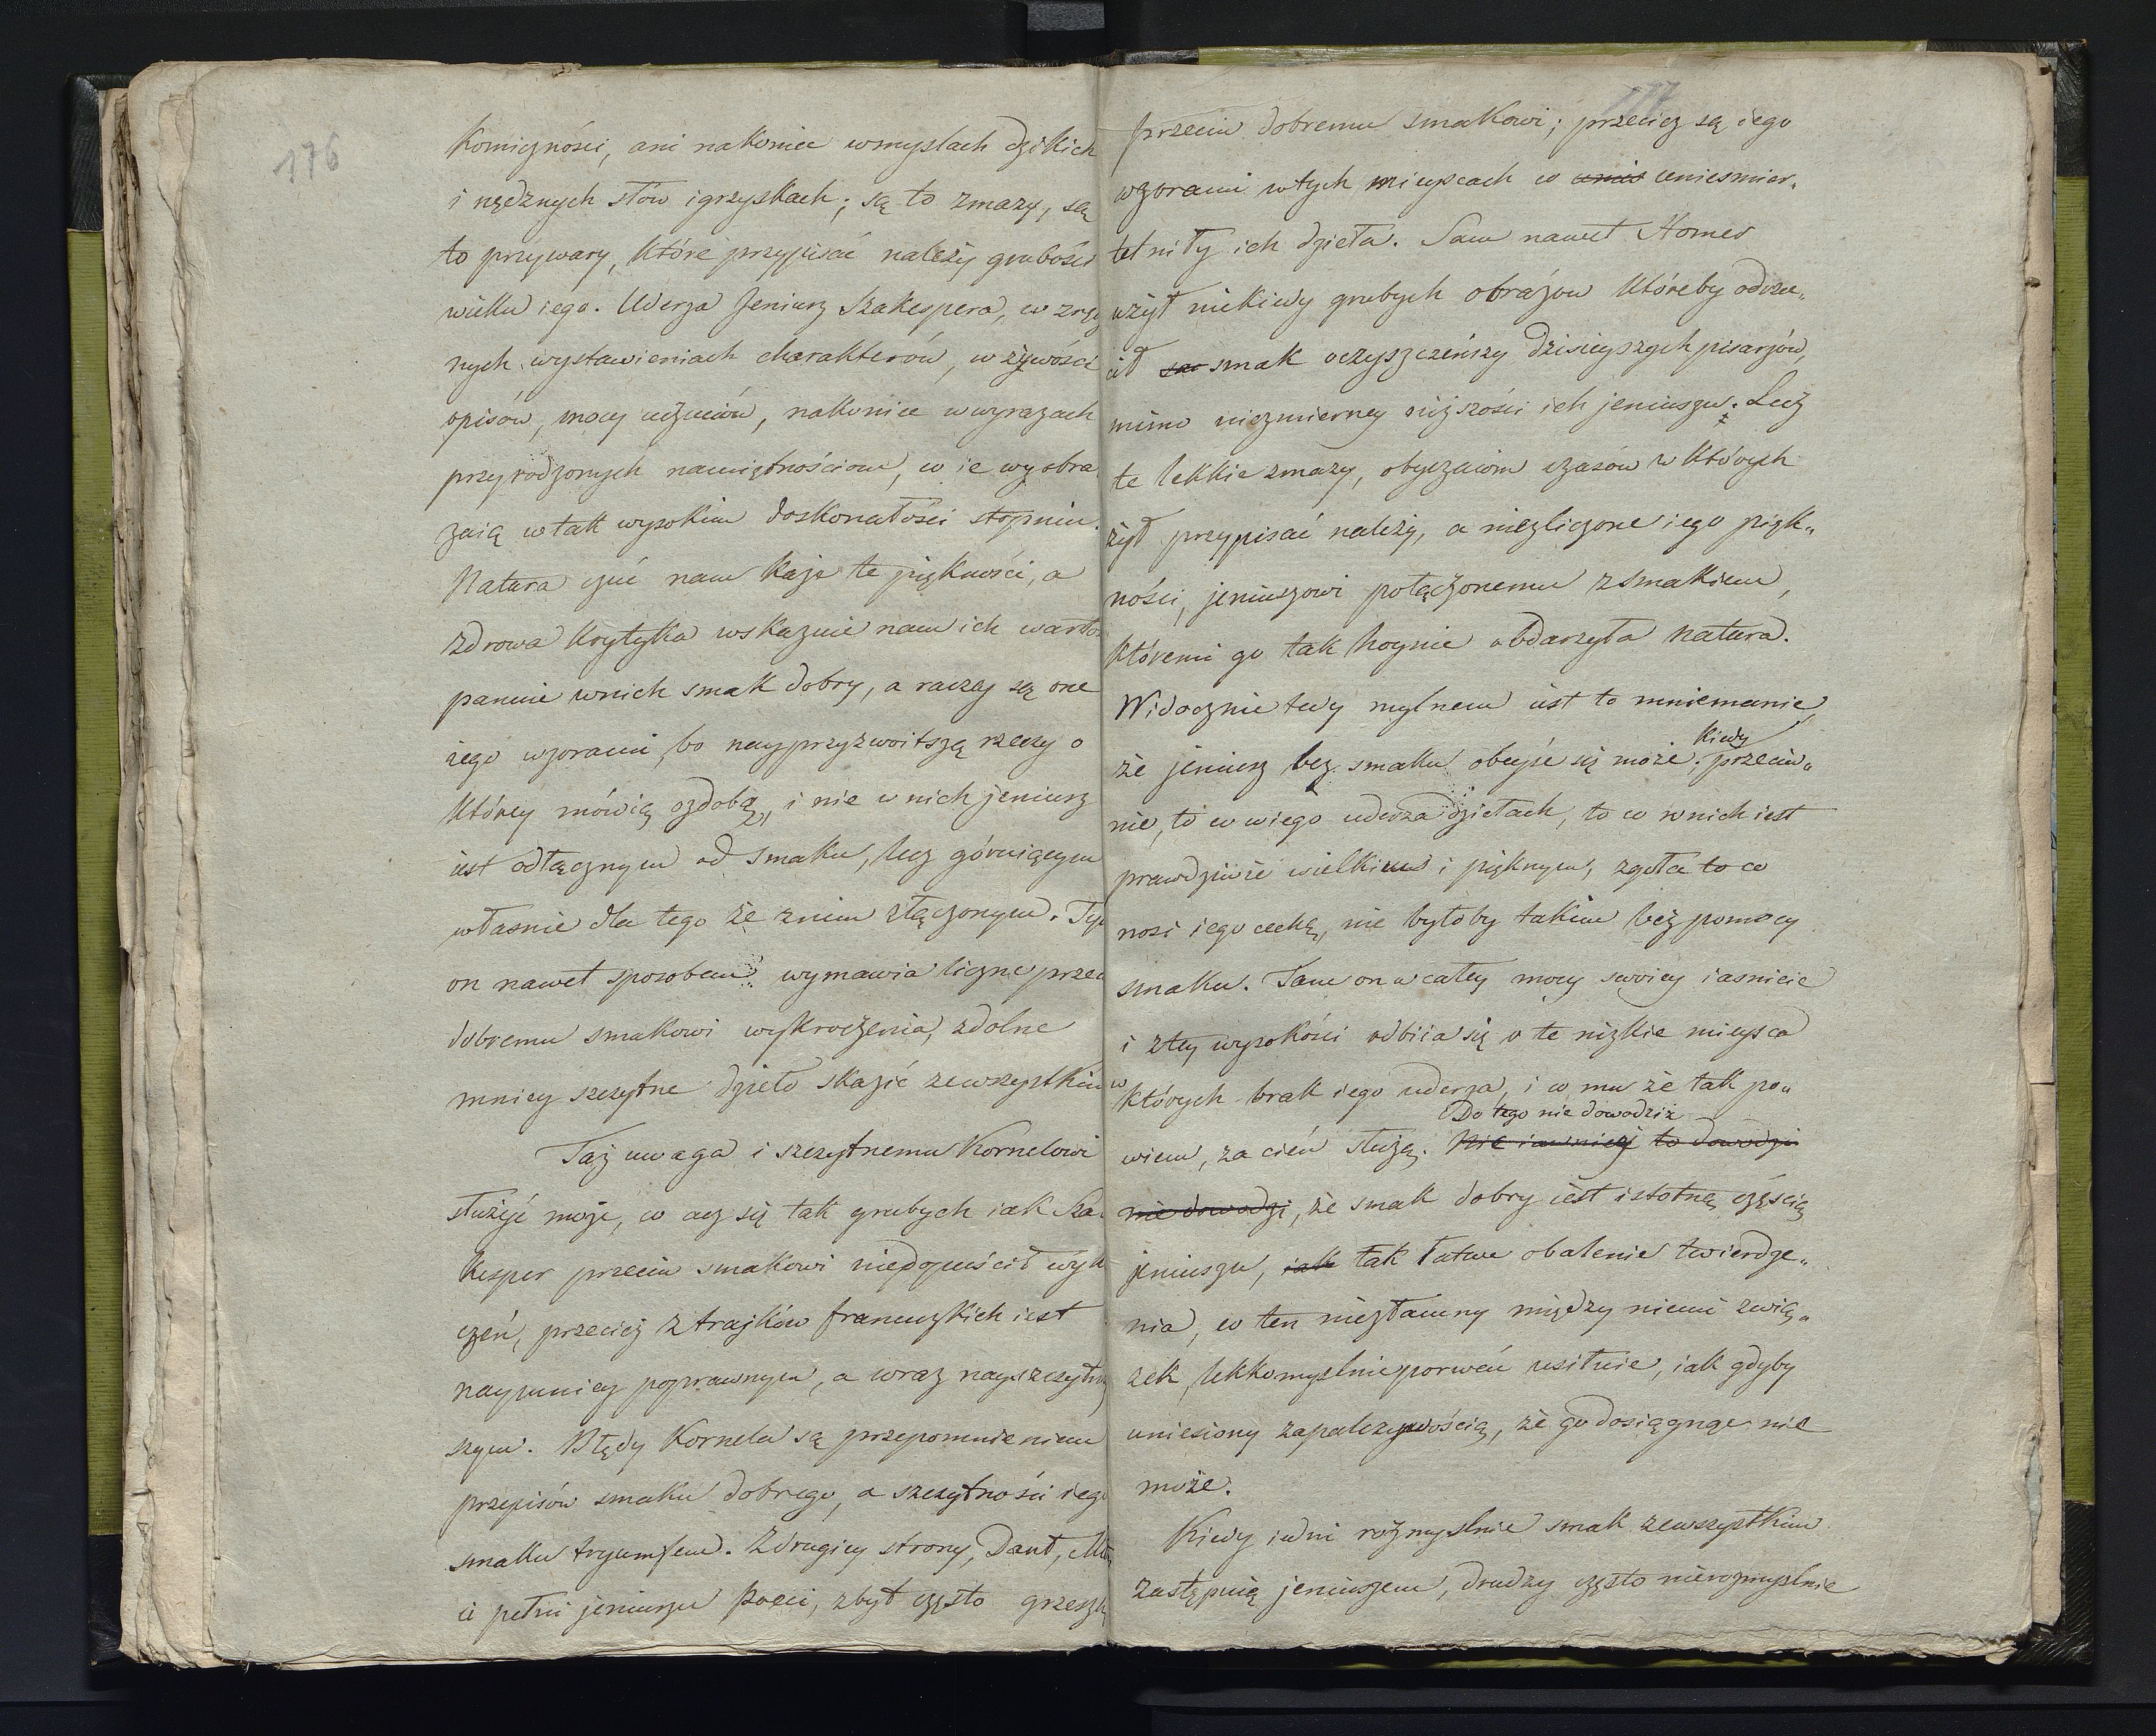 176
komiczności, ani nakoniec wmysłach dzikich
i nędznych słów igrzyskach; są to zmazy, są
to przywary, które przypisać należy grubości
wieku iego. Uderza Jeniusz Szakespera, w
nych wystawieniach charakterów, w żywości
opisów, mocy uczuciów, nakoniec wwyrazach
przyrodzonych namiętnościom, co ie wyobra
żaią wtak wysokim doskonałości stopniu.
Natura czuć nam każe te piękności, a
zdrowa krytyka wskazuie nam ich wartość
panuie wnich smak dobry, a raczey są one
iego wzorami, bo nayprzyzwoitszą rzeczy o
którey mówią ozdobą, i nie w nich jeniusz
iest odłącznym od smaku, lecz górniącym
własnie dla tego że znim złączonym. Tym
on nawet sposobem wymawia liczne przeciw
dobremu smakowi wykroczenia, zdolne
mniey szczytne dzieło skazić zewszystkim
Taż uwaga i szczytnemu Kornelowi
służyć może, co acz się tak grubych iak Sza
kesper przeciw smakowi niedopuścił wyk
czeń, przecież ztrajków francuzkich iest
naymniey poprawnym, a wraz nayszczytniey
szym. Błędy Kornela są przepomnieniem
przepisów smaku dobrego, a szczytności iego
smaku tryumfem. Zdrugiey strony, Dant,
ci pełni jeniuszu Poeci, zbyt często grzeszą
177
przeciw dobremu smakowi; przecież są iego
wzorami wtych mieyscach co unies unieśmier„
telniły ich dzieła. Sam nawet Homer
użył niekiedy grubych obrazow któreby odrzu„
cił sm smak oczyszczeńszy dzisieyszych pisarzów,
mimo niezmierney niższości ich jeniuszu. Lecz
te lekkie zmazy, obyczaiom czasów w których
żył przypisać należy, a niezliczone iego pięk„
ności, jeniuszowi połączonemu zsmakiem,
któremi go tak hoynie obdarzyła natura.
Widocznie tedy mylnem iest to mniemanie,
kiedy
że jeniusz bez smaku obeyść się może; przeciw„
nie, to co wiego uderza dziełach, to co wnich iest
prawdziwie wielkiem i pięknym, zgoła to co
nosi iego cechę, nie byłoby takim bez pomocy
smaku. Tam on w całey mocy swoiey iasnieie
i ztey wysokości odbiia się o te nizkie mieysca
w których brak iego uderza, i co mu że tak po„
Do tego nie dowodzi
wiem, za cień służą. Nic iawniey to dowodzi
nie dowodzi, że smak dobry iest istotną częścią
jeniuszu, iak tak łatwe obalenie twierdze„
nia, co ten niezłamny między niemi zwią„
zek, lekkomyslnie porwać usiłuie, iak gdyby
uniesiony zapalczywością, że go dosięgnąć nie
może.
Kiedy iedni rozmyślnie smak zewszystkim
zastępuią jeniuszem, drudzy często nierozmyślnie